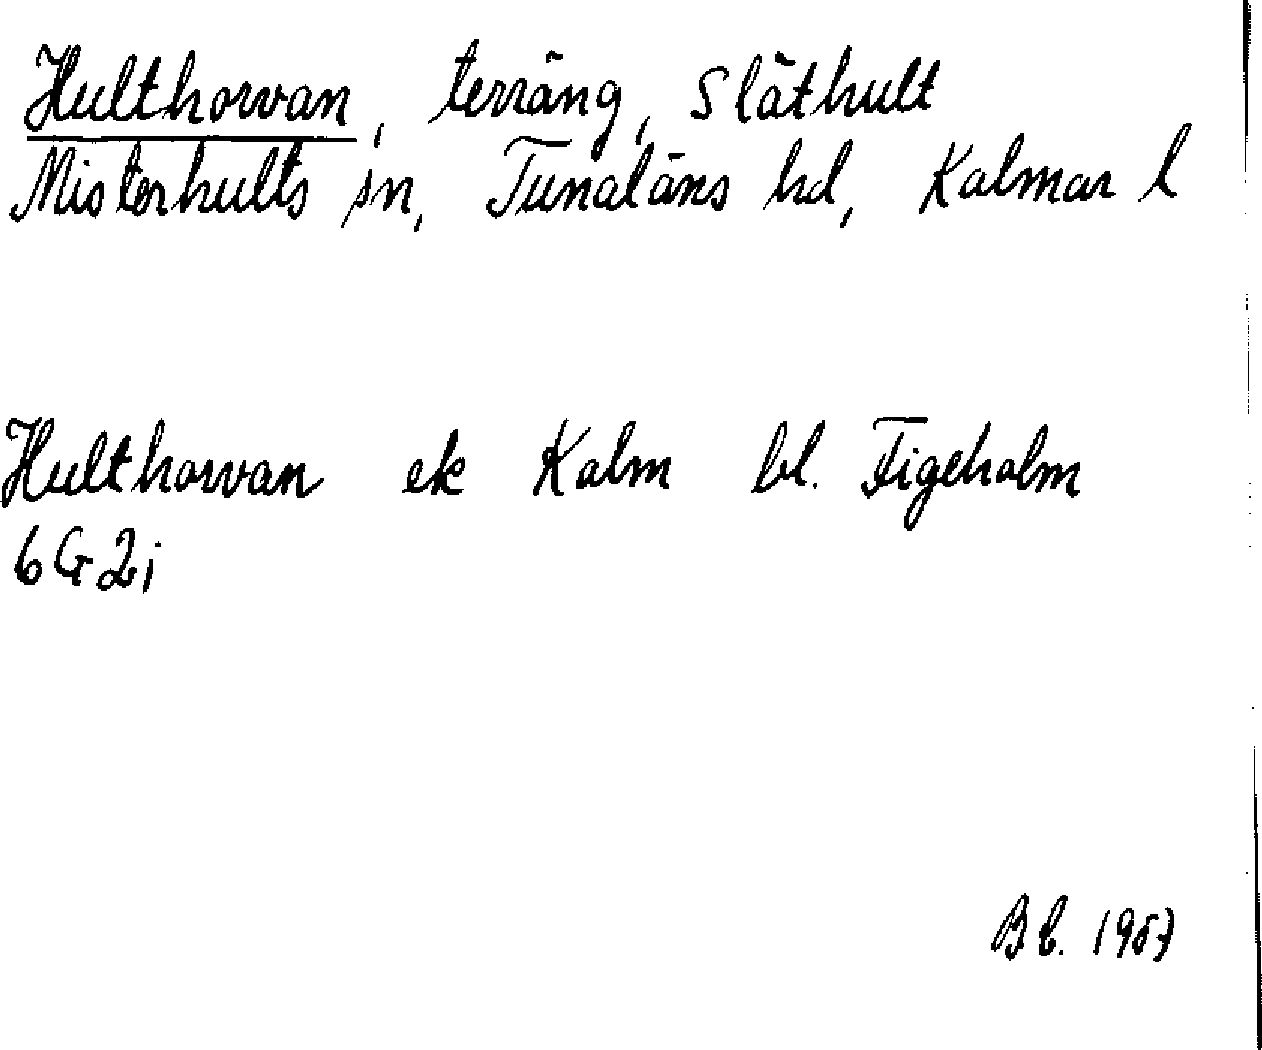 Hulthorvan, terräng, Släthult
Misterhults sn, Tunaläns hd, Kalmar l
Hulthorvan ek Kalm bl. Figeholm
6G2i
B E. 1967